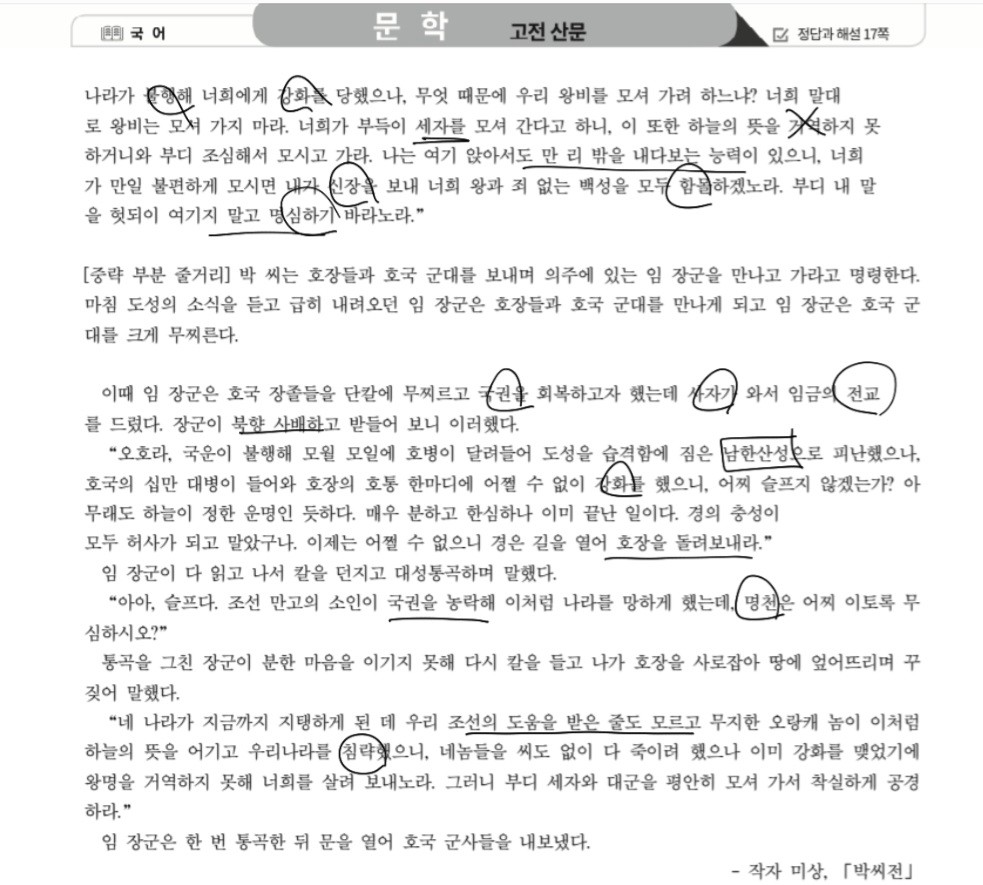 국 어
문 학
고전 산문
정답과 해설 17쪽
나라가 불행해 너희에게 강화를 당했으나, 무엇 때문에 우리 왕비를 모셔 가려 하느냐? 너희 말대
로 왕비는 모셔 가지 마라. 너희가 부득이 세자를 모셔 간다고 하니, 이 또한 하늘의 뜻을 거역하지 못
하거니와 부디 조심해서 모시고 가라. 나는 여기 앉아서도 만 리 밖을 내다보는 능력이 있으니, 너희
가 만일 불편하게 모시면 내가 신장을 보내 너희 왕과 죄 없는 백성을 모두 함몰하겠노라. 부디 내 말
을 헛되이 여기지 말고 명심하기 바라노라.”
[중략 부분 줄거리] 박 씨는 호장들과 호국 군대를 보내며 의주에 있는 임 장군을 만나고 가라고 명령한다.
마침 도성의 소식을 듣고 급히 내려오던 임 장군은 호장들과 호국 군대를 만나게 되고 임 장군은 호국 군
대를 크게 무찌른다.
이때 임 장군은 호국 장졸들을 단칼에 무찌르고 국권을 회복하고자 했는데 사자가 와서 임금의 전교
를 드렸다. 장군이 북향 사배하고 받들어 보니 이러했다.
“오호라, 국운이 불행해 모월 모일에 호병이 달려들어 도성을 습격함에 짐은 남한산성으로 피난했으나,
호국의 십만 대병이 들어와 호장의 호통 한마디에 어쩔 수 없이 강화를 했으니, 어찌 슬프지 않겠는가? 아
무래도 하늘이 정한 운명인 듯하다. 매우 분하고 한심하나 이미 끝난 일이다. 경의 충성이
모두 허사가 되고 말았구나. 이제는 어쩔 수 없으니 경은 길을 열어 호장을 돌려보내라.”
임 장군이 다 읽고 나서 칼을 던지고 대성통곡하며 말했다.
“아아, 슬프다. 조선 만고의 소인이 국권을 농락해 이처럼 나라를 망하게 했는데, 명천은 어찌 이토록 무
심하시오?”
통곡을 그친 장군이 분한 마음을 이기지 못해 다시 칼을 들고 나가 호장을 사로잡아 땅에 엎어뜨리며 꾸
짖어 말했다.
“네 나라가 지금까지 지탱하게 된 데 우리 조선의 도움을 받은 줄도 모르고 무지한 오랑캐 놈이 이처럼
하늘의 뜻을 어기고 우리나라를 침략했으니, 네놈들을 씨도 없이 다 죽이려 했으나 이미 강화를 맺었기에
왕명을 거역하지 못해 너희를 살려 보내노라. 그러니 부디 세자와 대군을 평안히 모셔 가서 착실하게 공경
하라.”
임 장군은 한 번 통곡한 뒤 문을 열어 호국 군사들을 내보냈다.
- 작자 미상, 「박씨전」